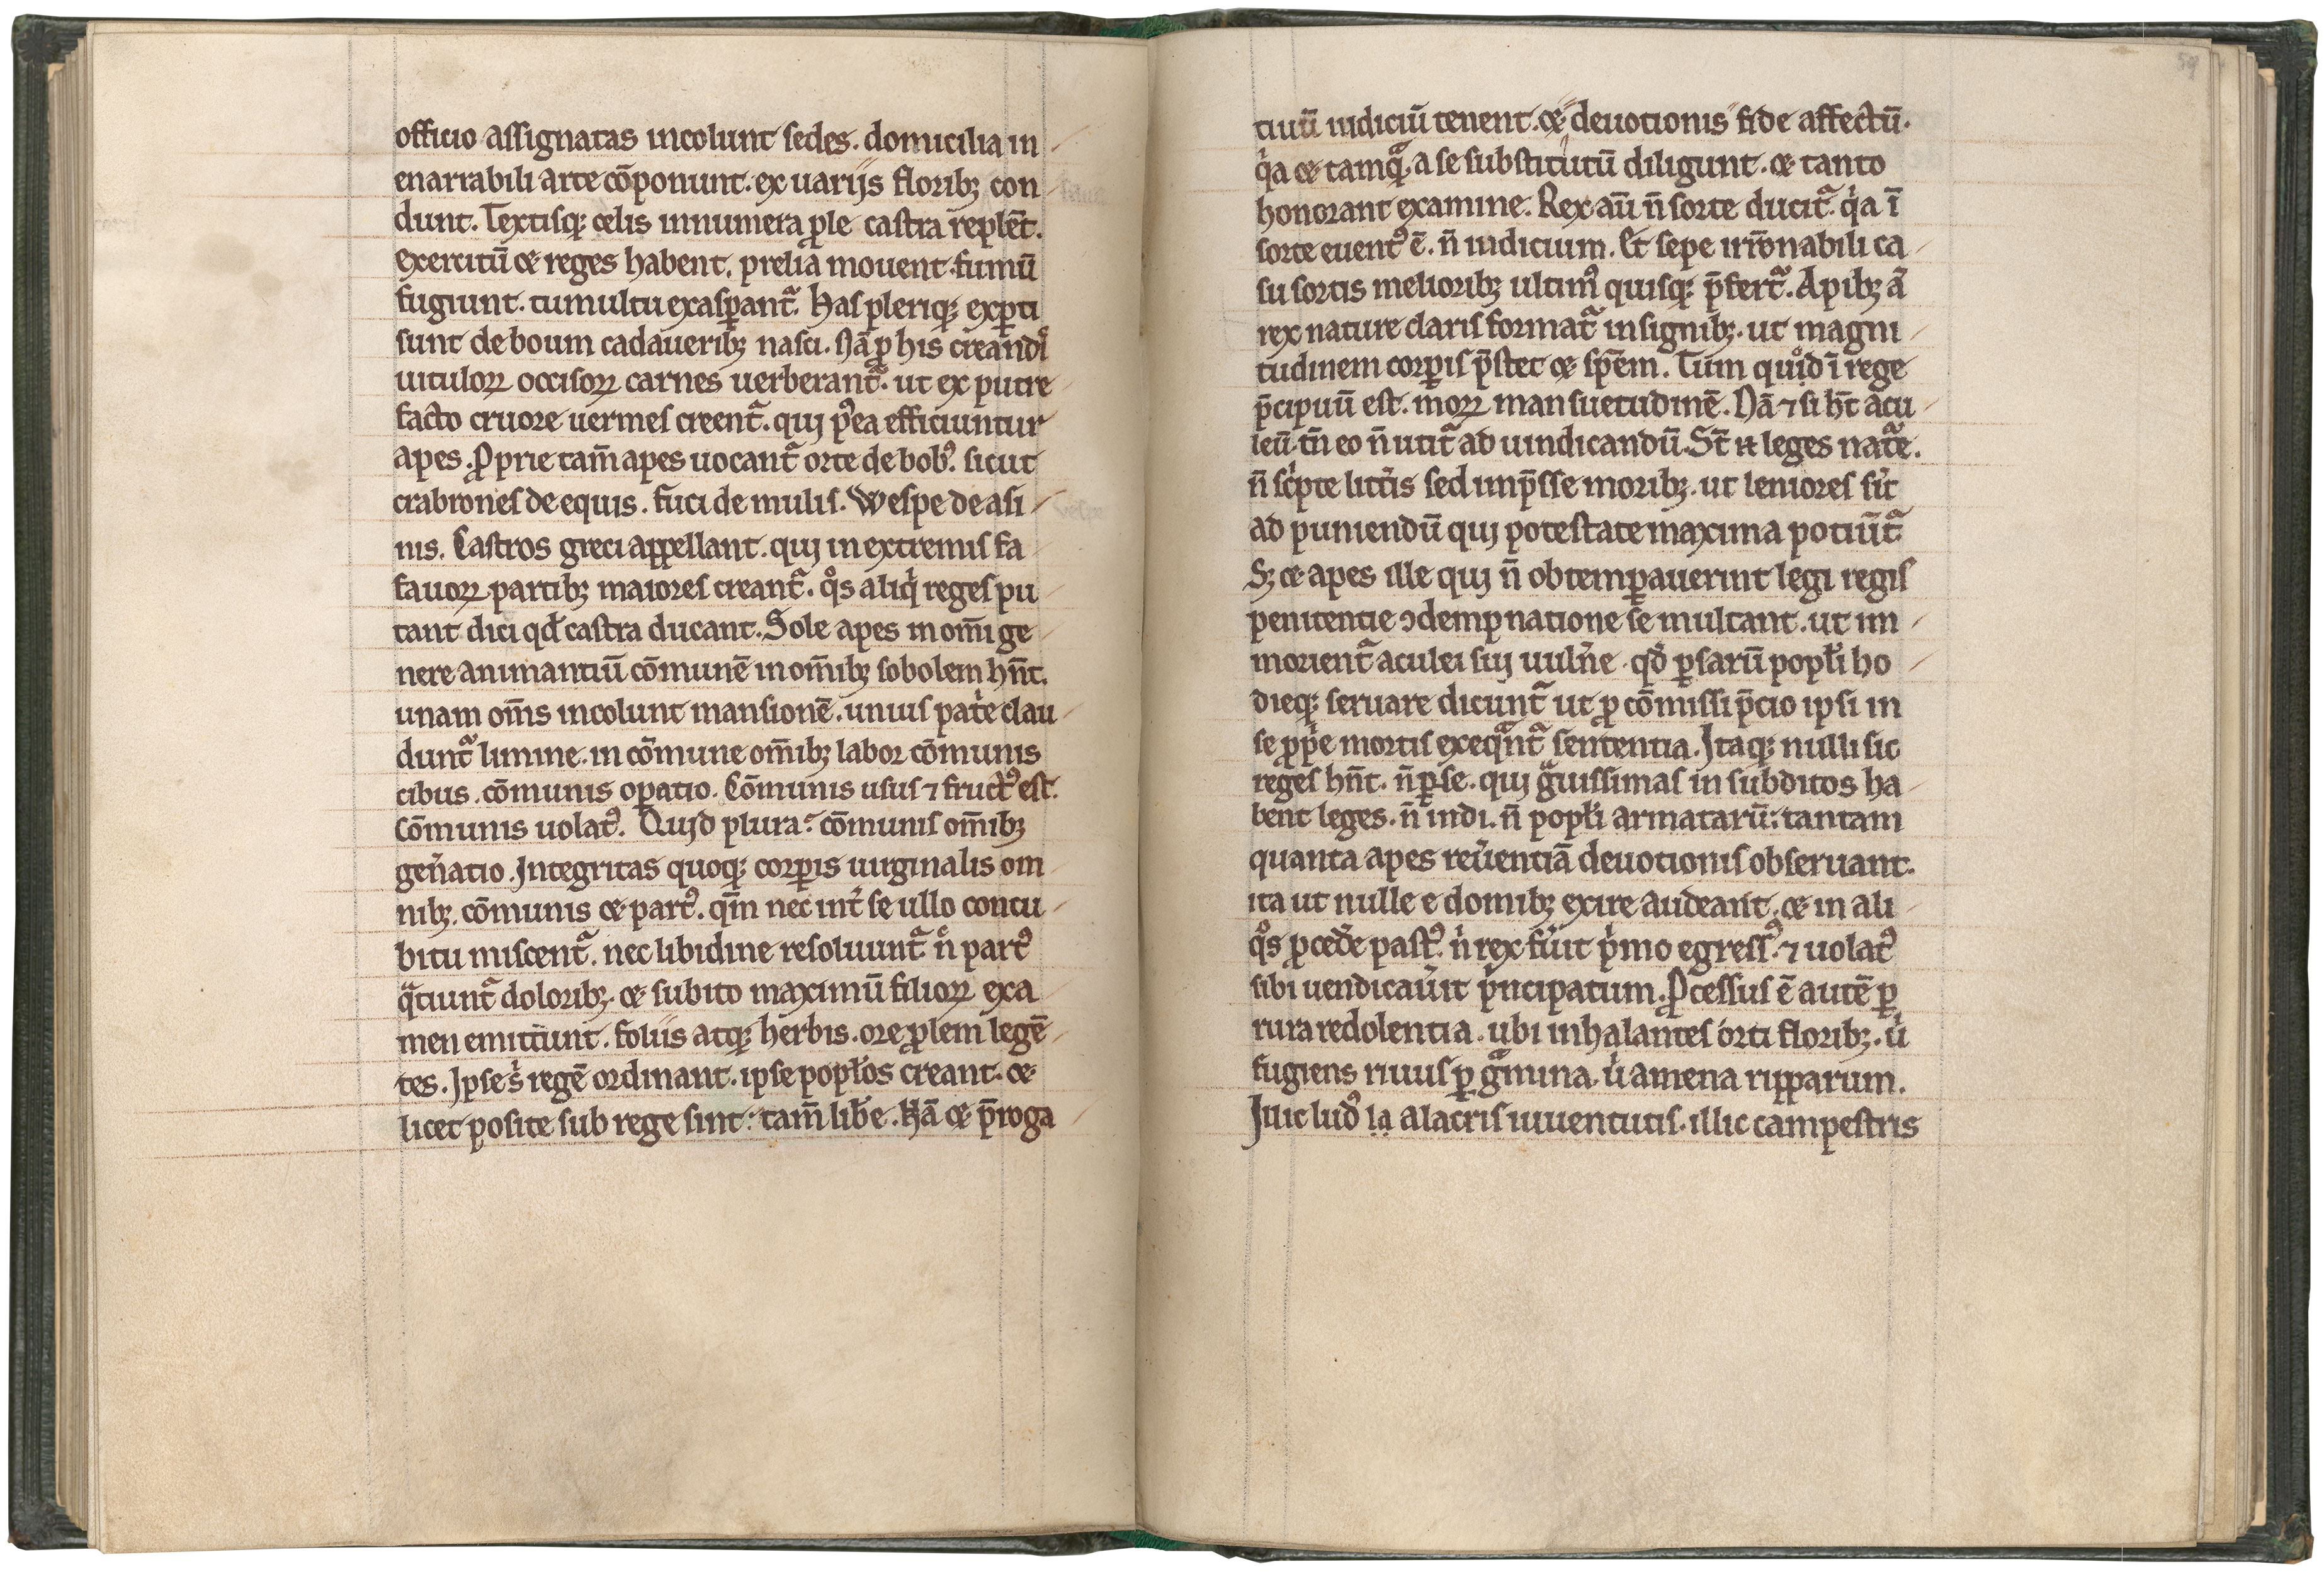 officio assignatas incolunt sedes. domicilia in
enarrabili arte cōponunt. ex uarijs floribꝫ con
dunt. Textisqꝫ celis innumera ꝓle castra replēt.
exercitū ⁊ reges habent. prelia mouent. fumū
fugiunt. tumultu exasꝑant᷑. has pleriqꝫ exꝑti
sunt de boum cadaueribꝫ nasci. Nā ꝓ his creandiˢ
uituloꝝ occisoꝝ carnes uerberant᷑. ut ex putre
facto cruore uermes creent᷑. qui pꝰea efficiuntur
apes. Ꝓprie tam̄ apes uocant᷑ orte de bobꝰ. sicut
crabrones de equis. fuci de mulis. Wespe de asi
nis. Castros greci appellant. qui in extremis fa
fauoꝝ partibꝫ maiores creant᷑. qͦs aliqͥ reges pu
tant dici qd̄ castra ducant. Sole apes in om̄i ge
nere animantiū cōmunē in om̄ibꝫ sobolem hn̄t.
unam om̄s incolunt mansionē. unius patͥe clau
dunt᷑ limine. in cōmune om̄ibꝫ labor cōmunis
cibus. cōmunis oꝑatio. Cōmunis usus ⁊ fructꝰ est.
cōmunis uolatꝰ. Quid plura? cōmunis om̄ibꝫ
gen̄atio. Integritas quoqꝫ corꝑis uirginalis om
nibꝫ. cōmunis ⁊ partꝰ. qm̄ nec int̄ se ullo concu
bitu miscent᷑. nec libidine resoluunt᷑. nͦ partꝰ
qᷓtiunt᷑ doloribꝫ. ⁊ subito maximū filioꝝ exa
men emittunt. foliis atqꝫ herbis. ore ꝓlem legē
tes. Ipse sͥ regē ordinant. ipse popłos creant. ⁊
licet posite sub rege sint: tam̄ lib̄e. Nā ⁊ p̄roga
tiuū iudiciū tenent. ⁊ deuotionis fide affectū.
qͥa ⁊ tamqᷓ. a se substitutū diligunt. ⁊ tanto
honorant examine. Rex aū n̄ sorte ducit᷑. qͥa ī
sorte euentꝰ ē. n̄ iudicium. Et sepe irr̄onabili ca
su sortis melioribꝫ ultimꝰ quisqꝫ p̄fert᷑. Apibꝫ ā
rex nature claris format᷑ insignibꝫ. ut magni
tudinem corꝑis p̄stet ⁊ sp̄em. Tum quͦd ī rege
p̄cipuū est. moꝝ mansuetudinē. Nā ⁊ si ht̄ acu
leū. tn̄ eo n̄ utit᷑ ad uindicandū. St̄ .n. leges nat᷑e.
n̄ scͥpte litt̄is sed imp̄sse moribꝫ. ut leniores sīt
ad puniendū qui potestate maxima potiūt᷑
Sꝫ ⁊ apes ille qui n̄ obtemꝑauerint legi regis
penitentie ꝯdempnatione se multant. ut im
morient᷑ aculei sui uuln̄e. qd̄ ꝑsarū popłi ho
dieqꝫ seruare dicunt᷑ ut ꝓ cōmissi p̄cio ipsi in
se ꝓpͥe mortis exeqᷓnt᷑ sententia. Itaqꝫ nulli sic
reges hn̄t. n̄ ꝑse. qui gᷓuissimas in subditos ha
bent leges. n̄ indi. n̄ popłi armatarū: tantam
quanta apes reūentiā deuotionis obseruant.
ita ut nulle e domibꝫ exire audeant. ⁊ in ali
qͦs ꝓced̄e pastꝰ. nͥ rex fūit pͥmo egressꝰ. ⁊ uolatꝰ
sibi uendicaūit pͥncipatum. Ꝓcessus ē autē ꝑ
rura redolentia. ubi inhalantes orti floribꝫ. uͥ
fugiens riuus ꝑ gᷓmina. uͥ amena ripparum.
Illic ludꝰ la alacris iuuentutis. illic campestris
59